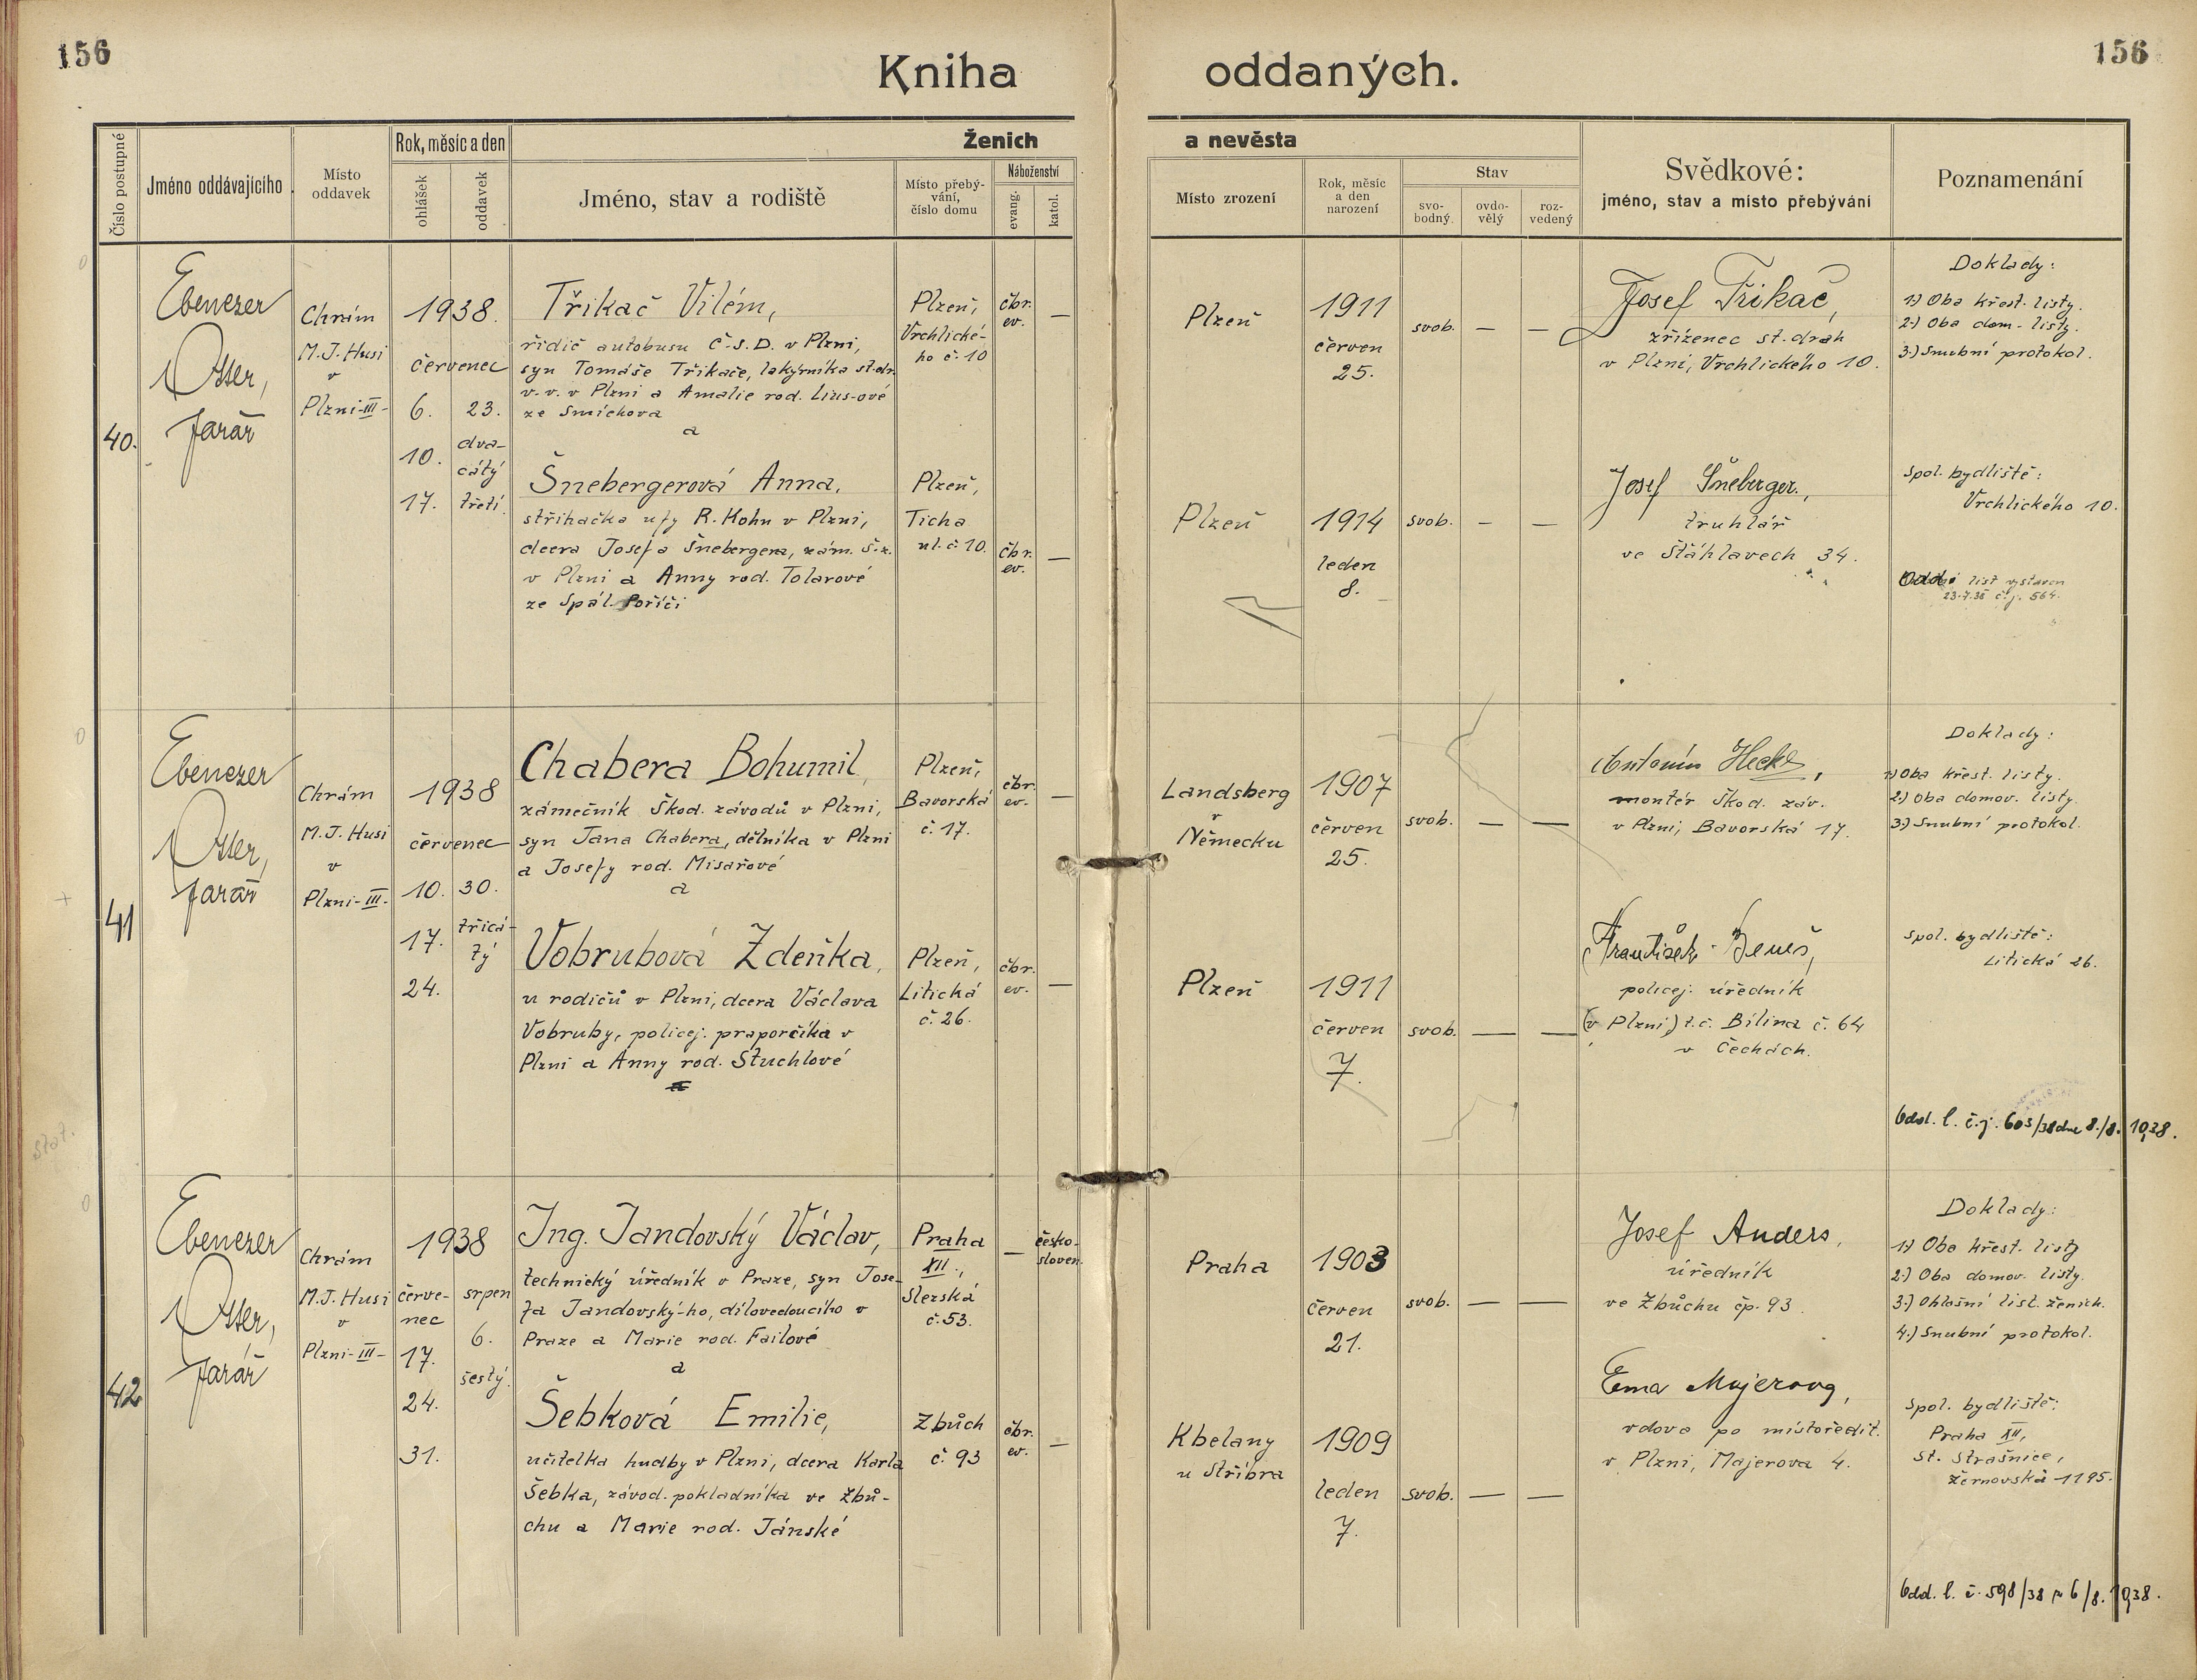 156
Kniha oddaných.
156
Číslo postupné
Jméno oddávajícího
Místo oddavek
Rok, měsíc a den
ohlášek
oddavek
Ženich a nevěsta
Jméno, stav a rodiště
Místo přebý-
vání,
číslo domu
Náboženství
evang.
katol.
Místo zrození
Rok, měsíc
a den
narození
Stav
svo-
bodný.
ovdo-
vělý
roz-
vedený
Svědkové:
jméno, stav a místo přebývání
Poznamenání
40.
Ebenezer
Otter,
farář
Chrám
M.J. Husi
v
Plzni-III-
1938.
červenec
6. 23.
10. dva-
cátý
17. třetí
Třikač Vilém,
řidič autobusu Č.S.D. v Plzni,
syn Tomáše Třikače, lakýrníka st.dr.
v.v. v Plzni a Amalie rod. Lius-ové
ze Smíchova
a
Šnebergerová Anna,
střihačka u fy R. Kohn v Plzni,
dcera Josefa Šnebergera, zám. Š.z.
v Plzni a Anny rod. Tolarové
ze Spál. Poříčí
Plzeň,
Vrchlické-
ho č. 10
Plzeň,
Ticha
ul. č. 10.
čbr.
ev. —
čbr.
ev. —
Plzeň
1911
červen
25.
svob. — —
Plzeň
1914
leden
8.
svob. — —
Josef Třikač,
zřízenec st. drah
v Plzni, Vrchlického 10.
Josef Šneberger,
truhlář
ve Šťáhlavech 34.
Doklady:
1.) Oba křest. listy.
2.) Oba dom. listy.
3.) Snubní protokol.
Spol. bydliště:
Vrchlického 10.
list vystaven
23.7.38 č.j. 564.
41
Ebenezer
Otter,
farář
Chrám
M.J. Husi
v
Plzni-III-
1938
červenec
10. 30.
17. třicá-
tý
24.
Chabera Bohumil,
zámečník Škod. závodů v Plzni,
syn Jana Chabera, dělníka v Plzni
a Josefy rod. Misařové
a
Vobrubová Zdeňka,
u rodičů v Plzni, dcera Václava
Vobruby, policej. praporčíka v
Plzni a Anny rod. Stuchlové
Plzeň,
Bavorská
č. 17.
Plzeň,
Litická
č. 26.
čbr.
ev. —
čbr.
ev. —
Landsberg
v
Německu
1907
červen
25.
svob. — —
Plzeň
1911
červen
7.
svob. — —
Antonín Heckl,
montér Škod. záv.
v Plzni, Bavorská 17.
František Beneš,
policej. úředník
(v Plzni) t.č. Bílina č. 64
v Čechách.
Doklady:
1.) Oba křest. listy.
2.) Oba domov. listy.
3.) Snubní protokol.
Spol. bydliště:
Litická 26.
Odd. l. č.j. 603/38 dne 8./8. 1938.
stat.
42
Ebenezer
Otter,
farář
Chrám
M.J. Husi
v
Plzni-III-
1938
červe-
nec
srpen
6.
17.
šestý.
24.
31.
Ing. Jandovský Václav,
technický úředník v Praze, syn Jose-
fa Jandovský-ho, dílovedoucího v
Praze a Marie rod. Failové
a
Šebková Emilie,
učitelka hudby v Plzni, dcera Karla
Šebka, závod. pokladníka ve Zbů-
chu a Marie rod. Jánské
Praha
XII.,
Slezská
č. 53.
Zbůch
č. 93
— česko-
sloven.
čbr.
ev. —
Praha
1903
červen
21.
svob. — —
Kbelany
u Stříbra
1909
leden
7.
svob. — —
Josef Anders,
úředník
ve Zbůchu čp. 93.
Ema Majerova,
vdova po místoředit.
v Plzni, Majerova 4.
Doklady:
1.) Oba křest. listy
2.) Oba domov. listy.
3.) Ohlašní list. ženich.
4.) Snubní protokol.
Spol. bydliště:
Praha XII,
St. Strašnice,
Žernovská 1195.
Odd. l. č. 598/38 6/8. 1938.